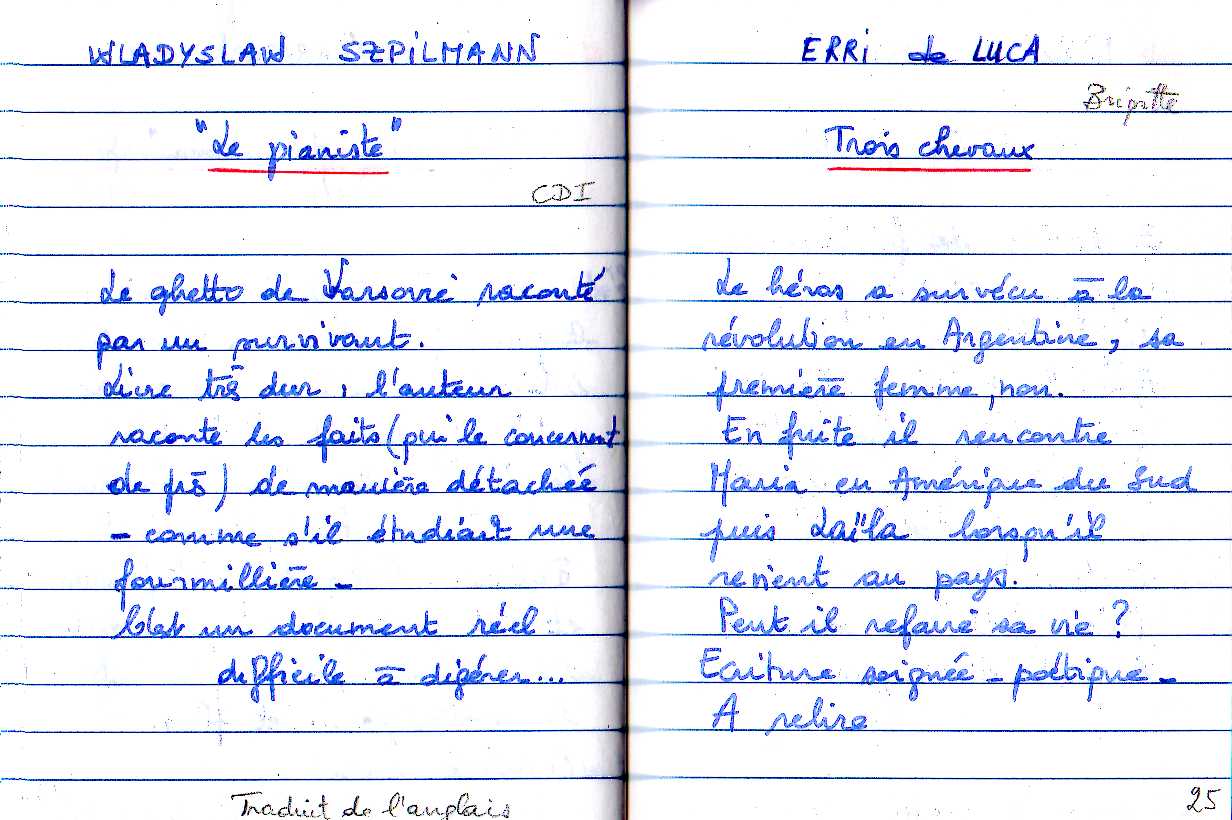 WLADYSLAW SZPILMANN
"Le pianiste"
CDI
Le ghetto de Varsovie raconté
par un survivant.
Livre très dur, l'auteur
raconte les faits (qui le concernent
de près) de manière détachée
- comme s'il étudiait une
fourmillière -
C'est un document réel
difficile à digérer...
Traduit de l'anglais
ERRI de LUCA
Brigitte
Trois chevaux
Le héros a survécu à la
révolution en Argentine, sa
première femme, non.
En fuite il rencontre
Maria en Amérique du Sud
puis Laïla lorsqu'il
revient au pays.
Peut il refaire sa vie ?
Ecriture soignée - poétique -
A relire
25